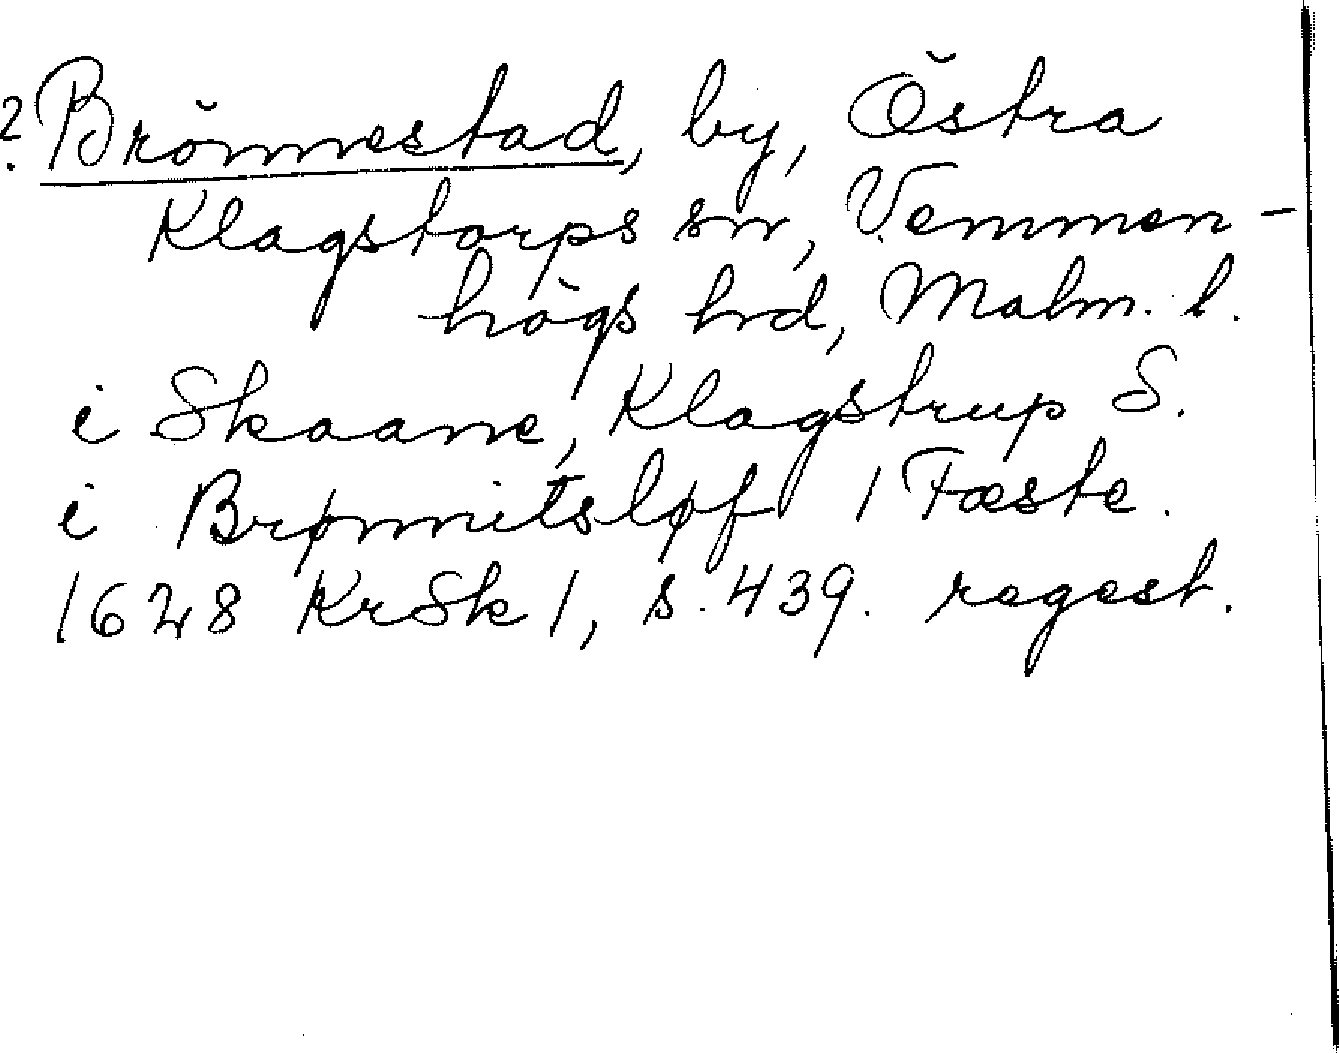 ? Brönnestad, by, Östra
Klagstorps sn, Vemmen-
högs hrd, Malm. l.
i Skaane, Klagstrup S.
i Brønnitsløf 1 Fæste.
1628 KrSk 1, s. 439. regest.